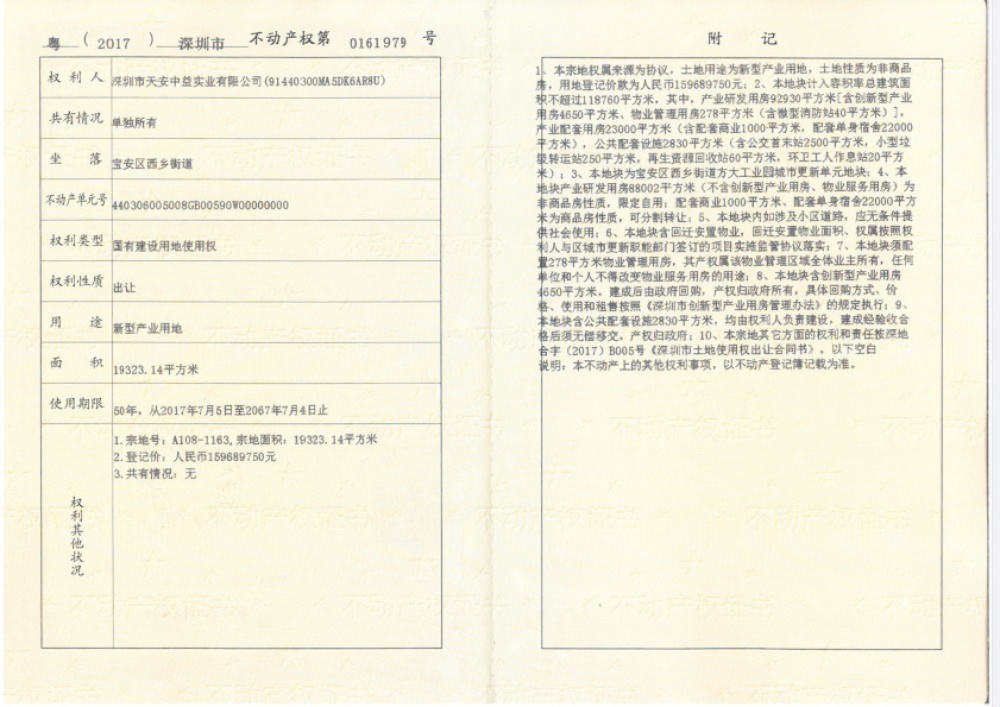 粤（2017）深圳市不动产权第0161979号
权利人 深圳市天安中益实业有限公司(91440300MA5DK6AR8U)
共有情况 单独所有
坐落 宝安区西乡街道
不动产单元号 440306005008GB00590W00000000
权利类型 国有建设用地使用权
权利性质 出让
用途 新型产业用地
面积 19323.14平方米
使用期限 50年，从2017年7月5日至2067年7月4日止
权利其他状况
1.宗地号：A108-1163,宗地面积：19323.14平方米
2.登记价：人民币159689750元
3.共有情况：无
附记
1、本宗地权属来源为协议，土地用途为新型产业用地，土地性质为非商品
房，用地登记价款为人民币159689750元；2、本地块计入容积率总建筑面
积不超过118760平方米，其中，产业研发用房92930平方米[含创新型产业
用房4650平方米、物业管理用房278平方米（含微型消防站40平方米）]，
产业配套用房23000平方米（含配套商业1000平方米，配套单身宿舍22000
平方米），公共配套设施2830平方米（含公交首末站2500平方米，小型垃
圾转运站250平方米，再生资源回收站60平方米，环卫工人作息站20平方
米）；3、本地块为宝安区西乡街道方大工业园城市更新单元地块；4、本
地块产业研发用房88002平方米（不含创新型产业用房、物业服务用房）为
非商品房性质，限定自用；配套商业1000平方米、配套单身宿舍22000平方
米为商品房性质，可分割转让；5、本地块内如涉及小区道路，应无条件提
供社会使用；6、本地块含回迁安置物业，回迁安置物业面积、权属按照权
利人与区城市更新职能部门签订的项目实施监管协议落实；7、本地块须配
置278平方米物业管理用房，其产权属该物业管理区域全体业主所有，任何
单位和个人不得改变物业服务用房的用途；8、本地块含创新型产业用房
4650平方米，建成后由政府回购，产权归政府所有，具体回购方式、价
格、使用和租售按照《深圳市创新型产业用房管理办法》的规定执行；9、
本地块含公共配套设施2830平方米，均由权利人负责建设，建成经验收合
格后须无偿移交，产权归政府；10、本宗地其它方面的权利和责任按深地
合字（2017）B005号《深圳市土地使用权出让合同书》。以下空白
说明：本不动产上的其他权利事项，以不动产登记簿记载为准。